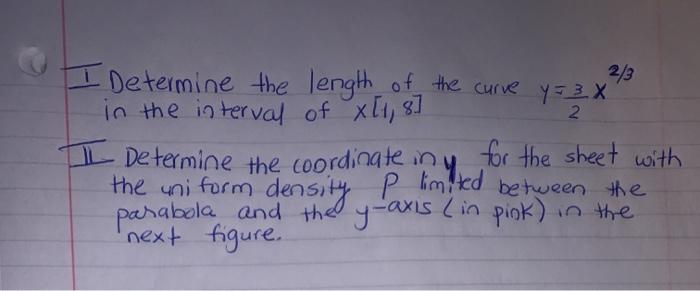 I Determine the length of the curve y = 3/2 x^2/3
in the interval of x[1, 8]
II Determine the coordinate in y for the sheet with
the uniform density P limited between the
parabola and the y-axis (in pink) in the
next figure.